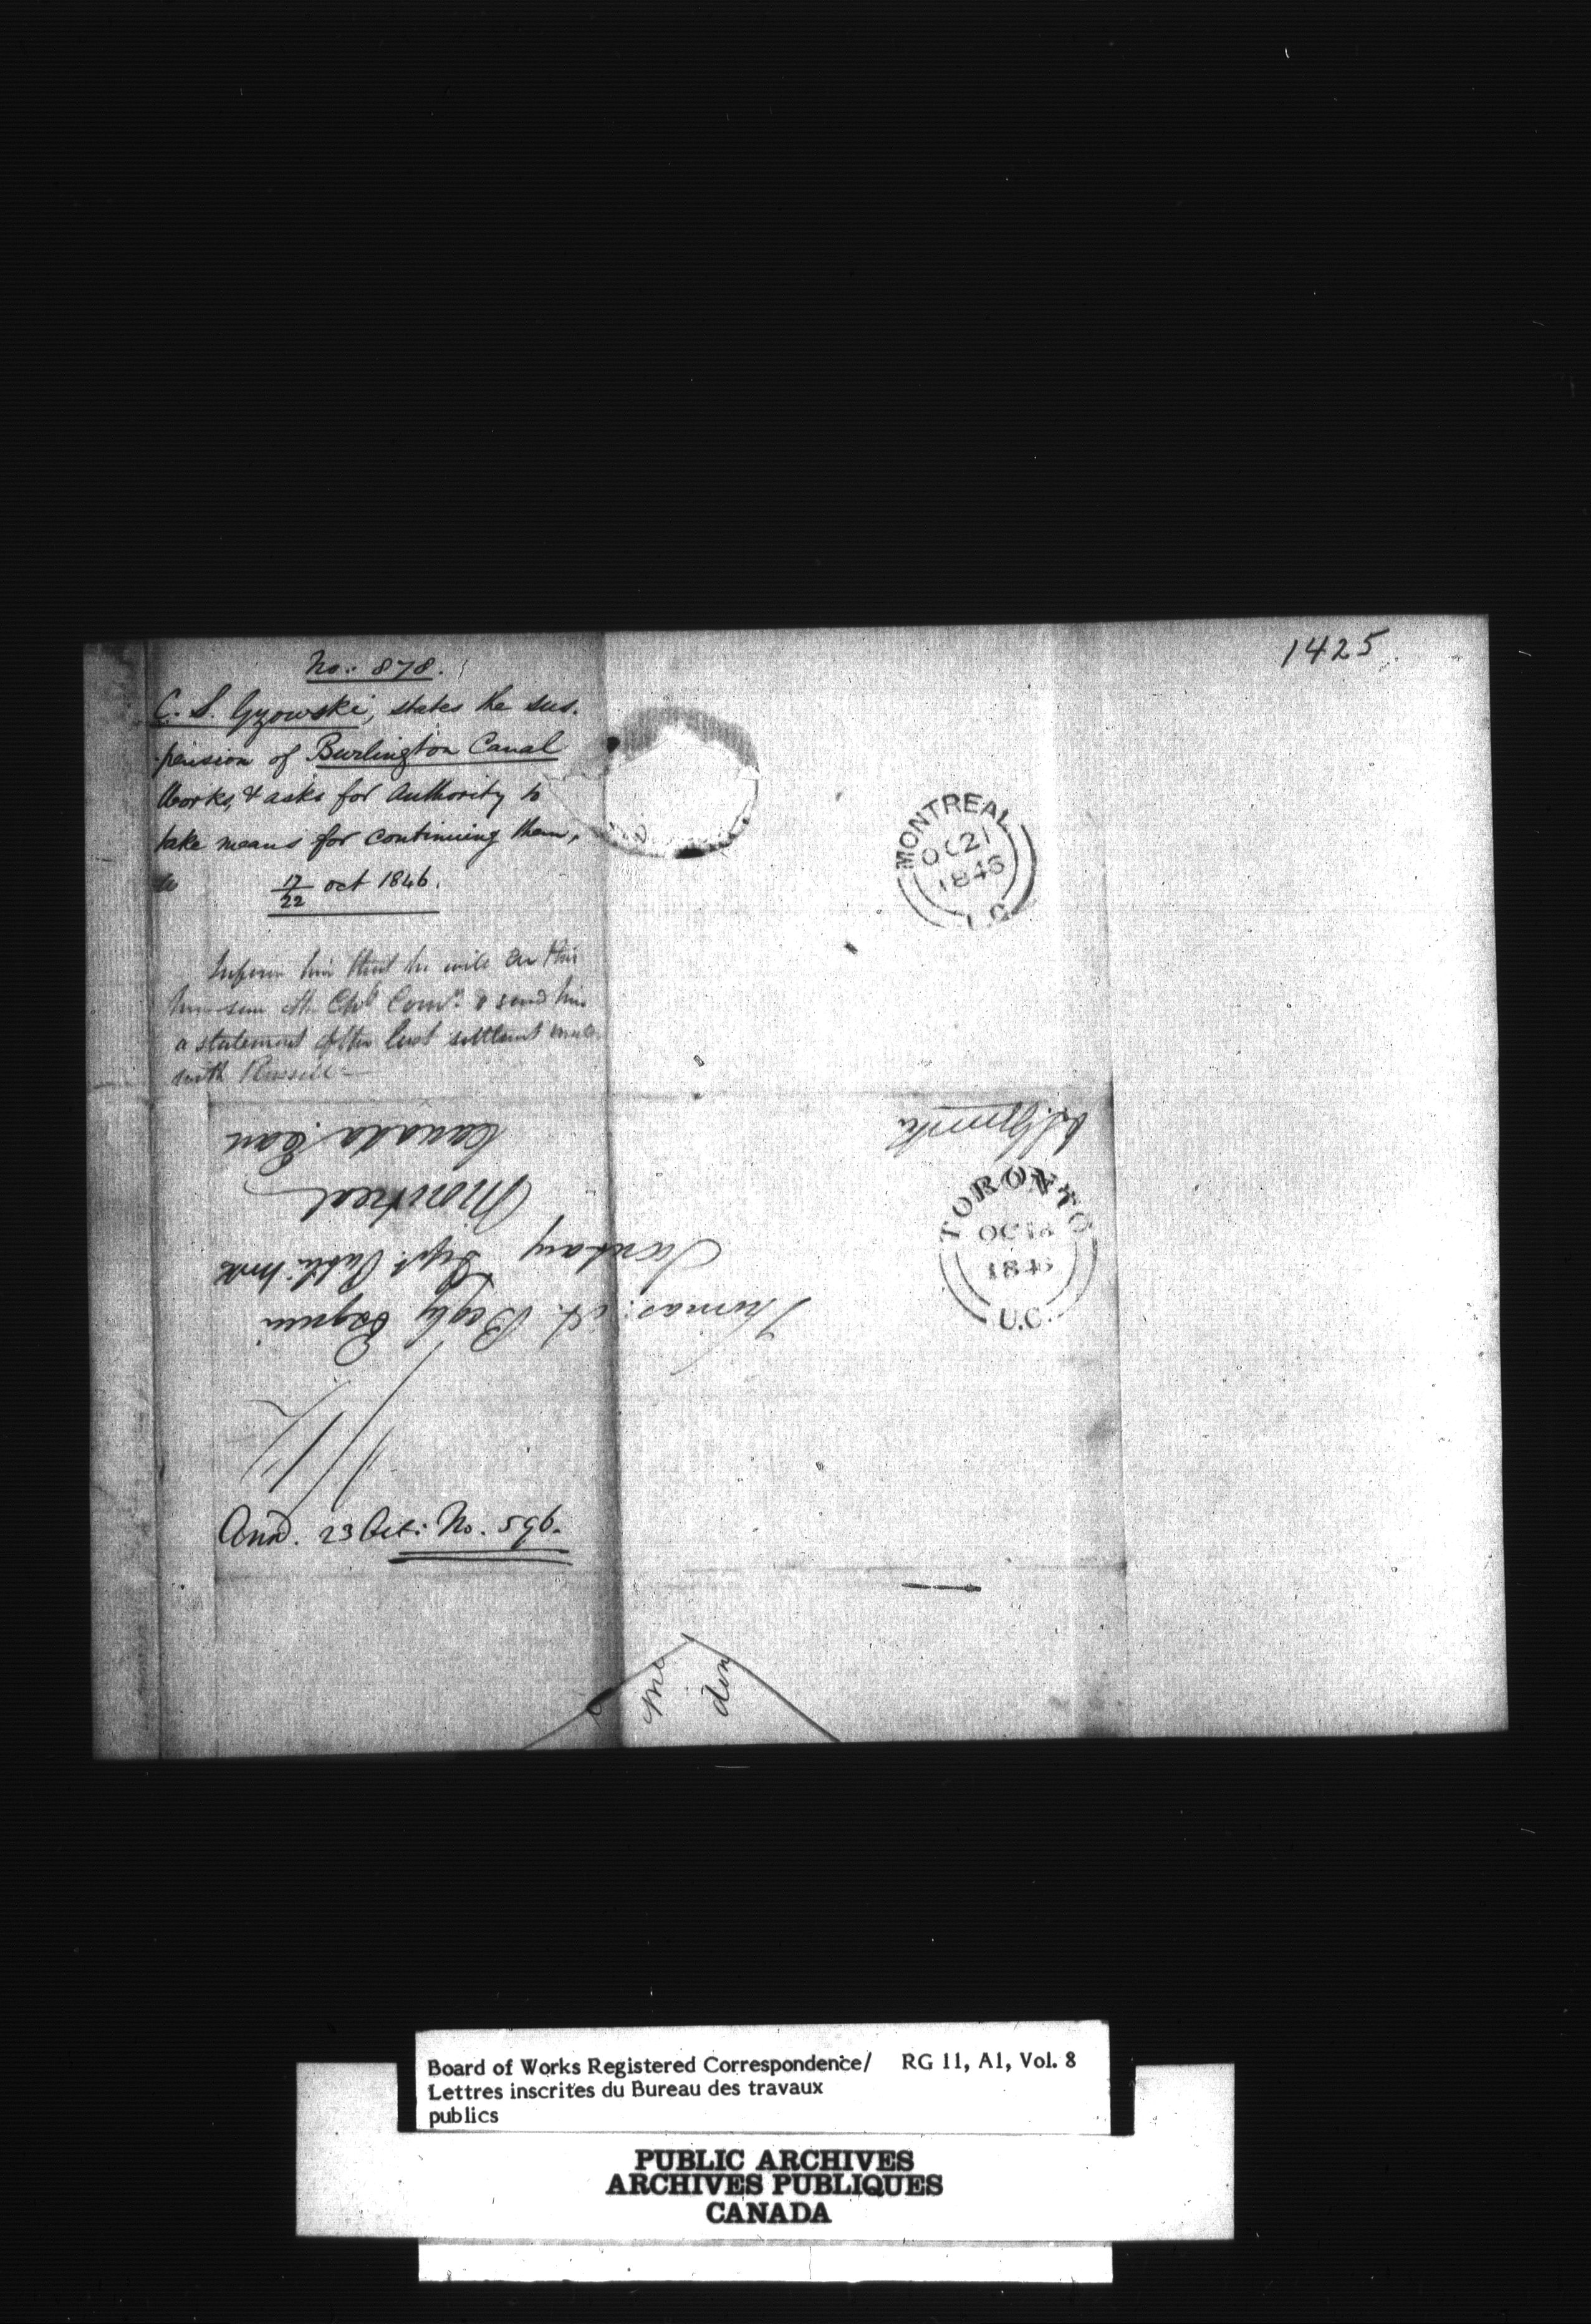 1425
No: 878.
C. S. Gzowski, states the sus-
pension of Burlington Canal
Works, & asks for authority to
take means for continuing them,
17/22 oct 1846.
Inform him that he will on this
the Chf Comr. & send him
a statement of the last settlement made
with Russell
MONTREAL
OC 21
1846
L.C
Thomas A. Begly Esquire
Secretary Dept. Public Works
Montreal
Canada East
TORONTO
OC 18
1846
U.C.
Ansd. 23 Oct: No. 596.
Board of Works Registered Correspondence/ RG 11, A1, Vol. 8
Lettres inscrites du Bureau des travaux
publics
PUBLIC ARCHIVES
ARCHIVES PUBLIQUES
CANADA